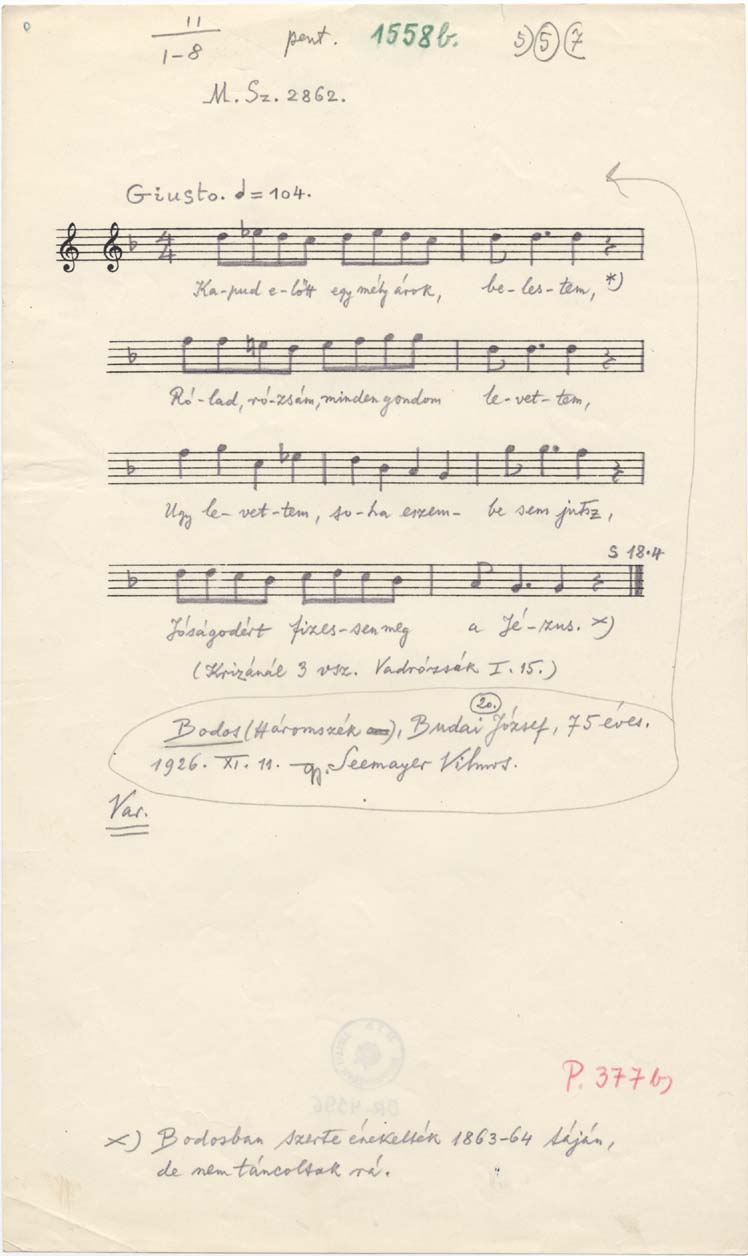 11
1–8
pent. 1558b. 5) 5 (7
M. Sz. 2862.
Giusto. = 104.
4/4
Ka-pud e-lőtt egy mély árok, be-les-tem, *)
Ró-lad, ró-zsám, minden gondom le-vet-tem,
Ugy le-vet-tem, so-ha eszem- be sem jutsz,
S 18.4
Jóságodért fizes-sen meg a Jé-zus. ×)
(Krizánál 3 vsz. Vadrózsák I. 15.)
20.
Bodos (Háromszék), Budai József, 75 éves.
1926. XI. 11. – gy. Seemayer Vilmos.
Var.
P. 377b)
×) Bodosban szerte énekelték 1863–64 táján,
de nem táncoltak rá.